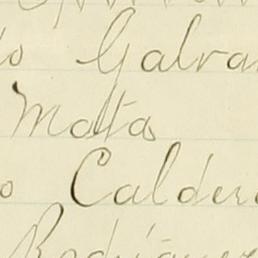 o Galva
Mata
o Calder
Rodríguez